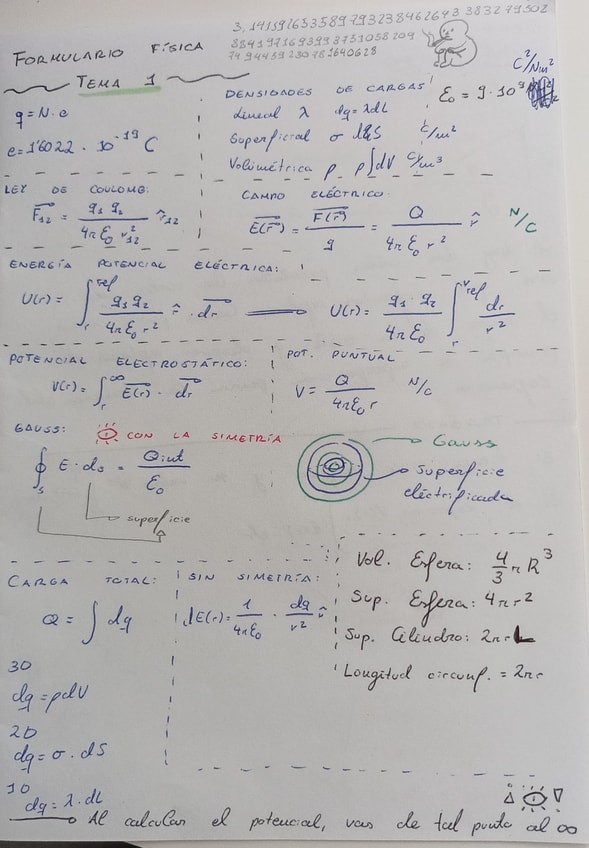 3, 14159265358979323846264338327950 2
884197169399375105820 9
74 944592307816406 28
FORMULARIO FÍSICA
TEMA 1
q = N · e
e = 1'6022 · 10^-19 C
DENSIDADES DE CARGAS
Lineal λ dq = λdL
Superficial σ C/m²
Volumétrica ρ ρ∫dV C/m³
C²/Nm²
ε₀ = 9 · 10⁹
LEY DE COULOMB:
F₁₂ = q₁ q₂ / 4π ε₀ r²₁₂ r̂₁₂
CAMPO ELÉCTRICO
E(r) = F(r) / q = Q / 4π ε₀ r² r̂ N/C
ENERGÍA POTENCIAL ELÉCTRICA:
U(r) = ∫ᵣ^ref q₁ q₂ / 4π ε₀ r² r̂ · dr U(r) = q₁ · q₂ / 4π ε₀ ∫ᵣ^rref dr / r²
POTENCIAL ELECTROSTÁTICO:
V(r) = ∫ᵣ^∞ E(r) · dr
POT. PUNTUAL
V = Q / 4π ε₀ r N/C
GAUSS: CON LA SIMETRÍA
∮ₛ E · ds = Q int / ε₀
superficie
Gauss
Superficie
eléctrificada
CARGA TOTAL:
Q = ∫ dq
3D
dq = ρdV
2D
dq = σ · dS
1D
dq = λ · dL
SIN SIMETRÍA:
dE(r) = 1 / 4π ε₀ · dq / r² r̂
Vol. Esfera: 4/3 π R³
Sup. Esfera: 4πr²
Sup. Cilindro: 2πrL
Longitud circunf. = 2πr
Al calcular el potencial, vas de tal punto al ∞